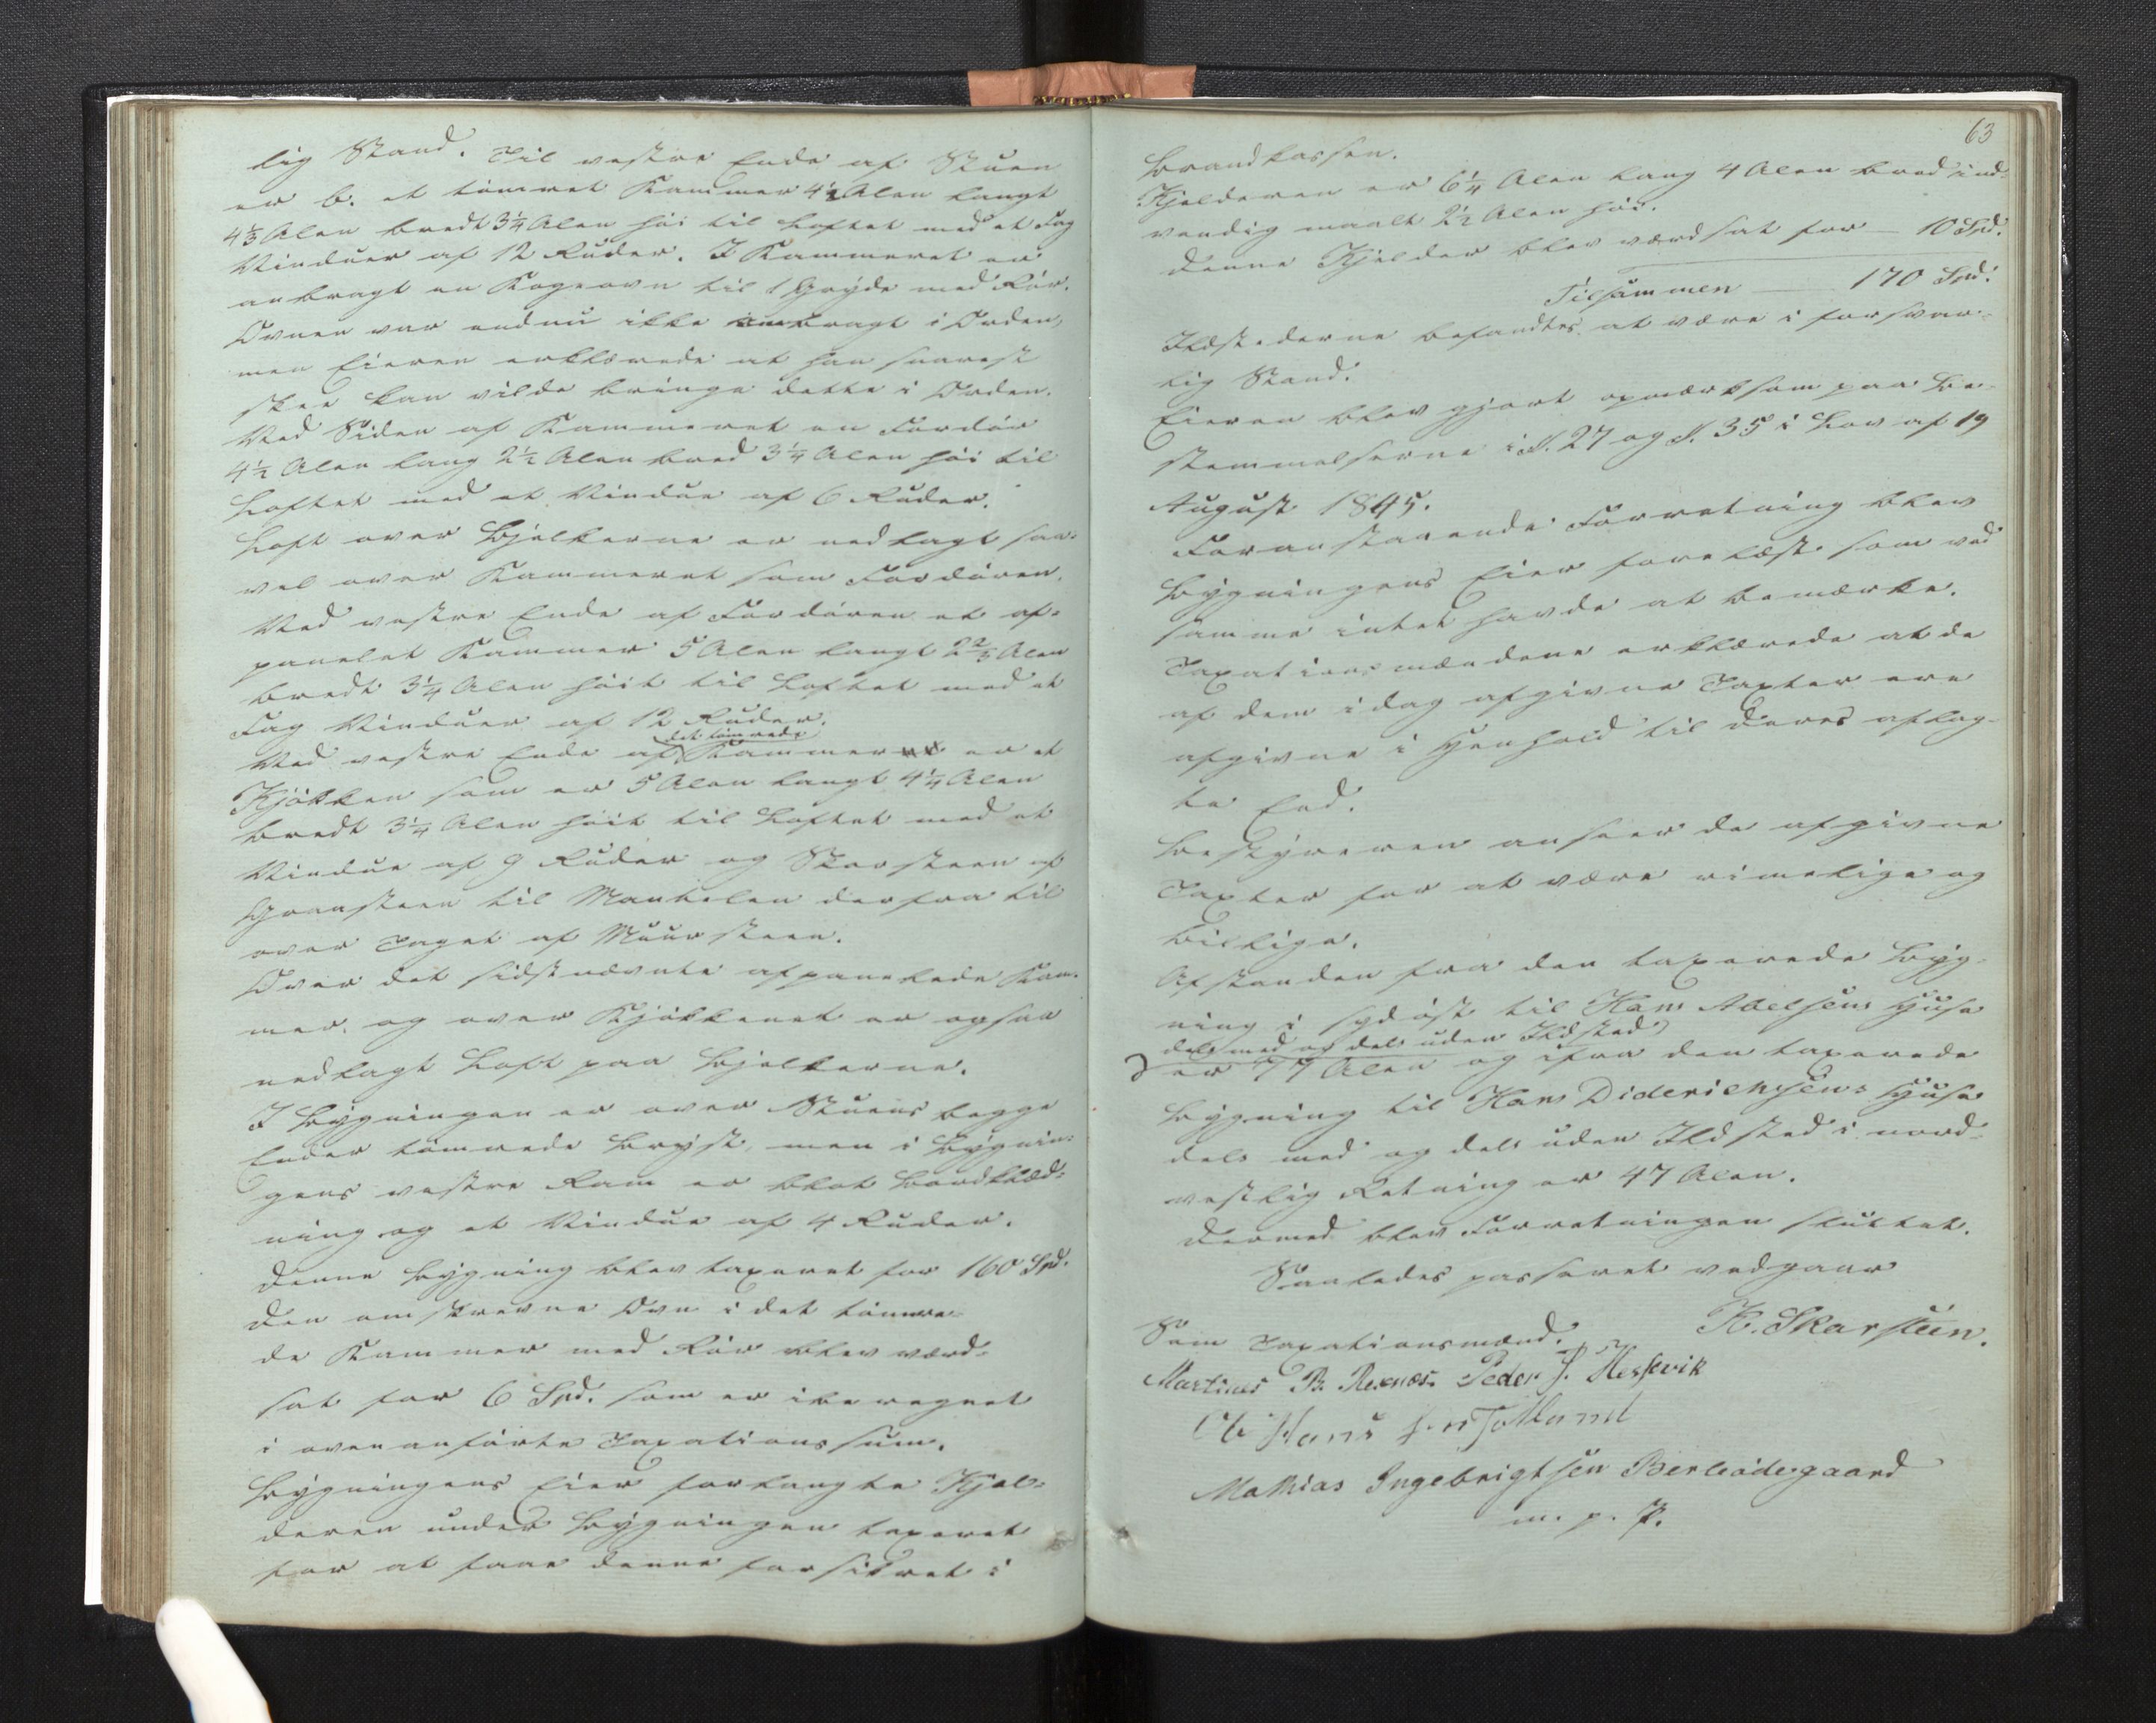 lig Stand. Til vestre Ende af Stuen
er b. et tömret Kammer 4½ Alen langt
4⅓ Alen bredt 3¼ Alen höi til Loftet med et Fag
Vinduer af 12 Ruder. I Kammeret er
anbragt en Kogeovn til 1 Gryde med Rör.
Ovnen var endnu ikke bragt i Orden,
men Eieren erklærede at han snarest
skee kan vilde bringe dette i Orden.
Ved Siden af Kammeret en Fordör
4½ Alen lang 2½ Alen bred 3¼ Alen höi til
Loftet med et Vindue af 6 Ruder.
Loft over Bjelkerne er nedlagt saa-
vel over Kammeret som Fordören.
Ved vestre Ende af Fordören et af-
panelet Kammer 5 Alen langt 2⅔ Alen
bredt 3¼ Alen höit til Loftet med et
Fag Vinduer af 12 Ruder.
det tömrede
Ved vestre Ende af Kammer er et
Kjökken som er 5 Alen langt 4¼ Alen
bredt 3¼ Alen höit til Loftet med et
Vindue af 9 Ruder og Skorsteen af
Graasteen til Mantelen derfra til
over Taget af Muursteen.
Over det sidstnævnte afpanelede Kam-
mer og over Kjökkenet er ogsaa
nedlagt Loft paa Bjelkerne.
I Bygningen er over Stuens begge
Ender tömrede Bryst, men i Bygnin-
gens vestre Ram er blot Bordklæd-
ning og et Vindue af 4 Ruder.
Denne Bygning blev taxeret for 160 Spd.
Den omskrevne Ovn i det tömre-
de Kammer med Rör blev værd-
sat for 6 Spd. som er iberegnet
i ovenanförte Taxationssum.
Bygningens Eier forlangte Kjel-
deren under Bygningen taxeret
for at faae denne forsikret i
63
Brandkassen.
Kjelderen er 6¼ Alen lang 4 Alen bred ind-
vendig maalt 2½ Alen höi.
Denne Kjelder blev værdsat for — 10 Spd.
Tilsammen — 170 Spd.
Ildstederne befandtes at være i forsvar-
lig Stand.
Eieren blev gjort opmærksom paa Be-
stemmelserne i §. 27 og §. 35 i Lov af 19
August 1845.
Foranstaaende Forretning blev
Bygningens Eier forelæst som ved
samme intet havde at bemærke.
Taxationsmændene erklærede at de
af dem idag afgivne Taxter ere
afgivne i Henhold til deres aflag-
te Eed.
Bestyreren anseer de afgivne
Taxter for at være rimelige og
billige.
Afstanden fra den taxerede Byg-
ning i sydöst til Hans Abelsens Huse
dels med og dels uden Ildsted
er 77 Alen og ifra den taxerede
Bygning til Hans Diderichsens Huse
dels med og dels uden Ildsted i nord-
vestlig Retning er 47 Alen.
Dermed blev Forretningen sluttet.
Saaledes passeret vedgaar
H. Skarsteen.
Som Taxationsmænd.
Martines B. Rexnæs. Peder J. Hessevik
Ole Hans
Mathias Ingebrigtsen
m. p. P.